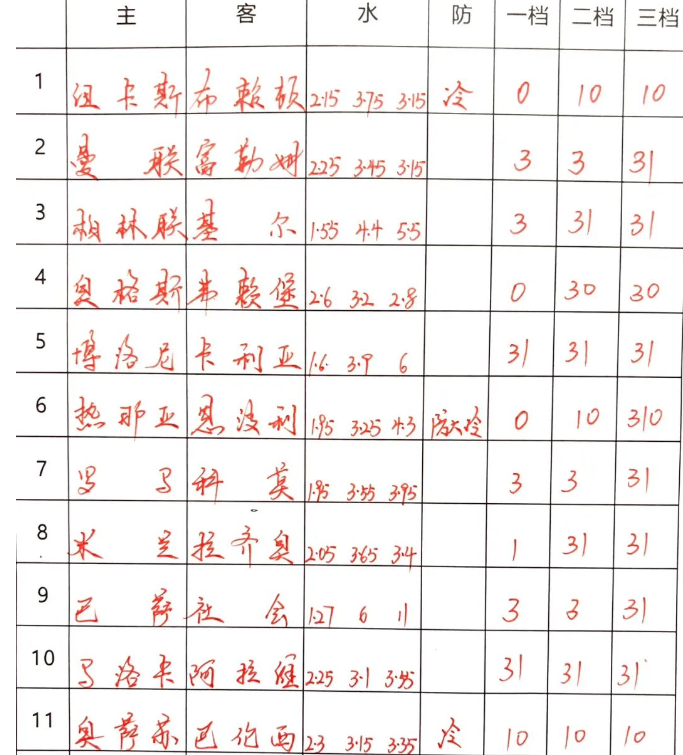 主 客 水 防 一档 二档 三档
1 纽卡斯 布赖顿 2.15 3.75 3.15 冷 0 10 10
2 曼联 富勒姆 2.25 3.45 3.15 3 3 31
3 柏林联 基尔 1.55 4.4 5.5 3 31 31
4 奥格斯 弗赖堡 2.6 3.2 2.8 0 30 30
5 博洛尼 卡利亚 1.6 3.9 6 31 31 31
6 热那亚 恩波利 1.95 3.25 4.3 防大冷 0 10 310
7 罗马 科莫 1.95 3.55 3.95 3 3 31
8 米兰 拉齐奥 2.05 3.65 3.4 1 31 31
9 巴萨 社会 1.27 6 11 3 3 31
10 马洛卡 阿拉维 2.25 3.1 3.55 31 31 31
11 奥萨苏 巴伦西 2.3 3.15 3.35 冷 10 10 10